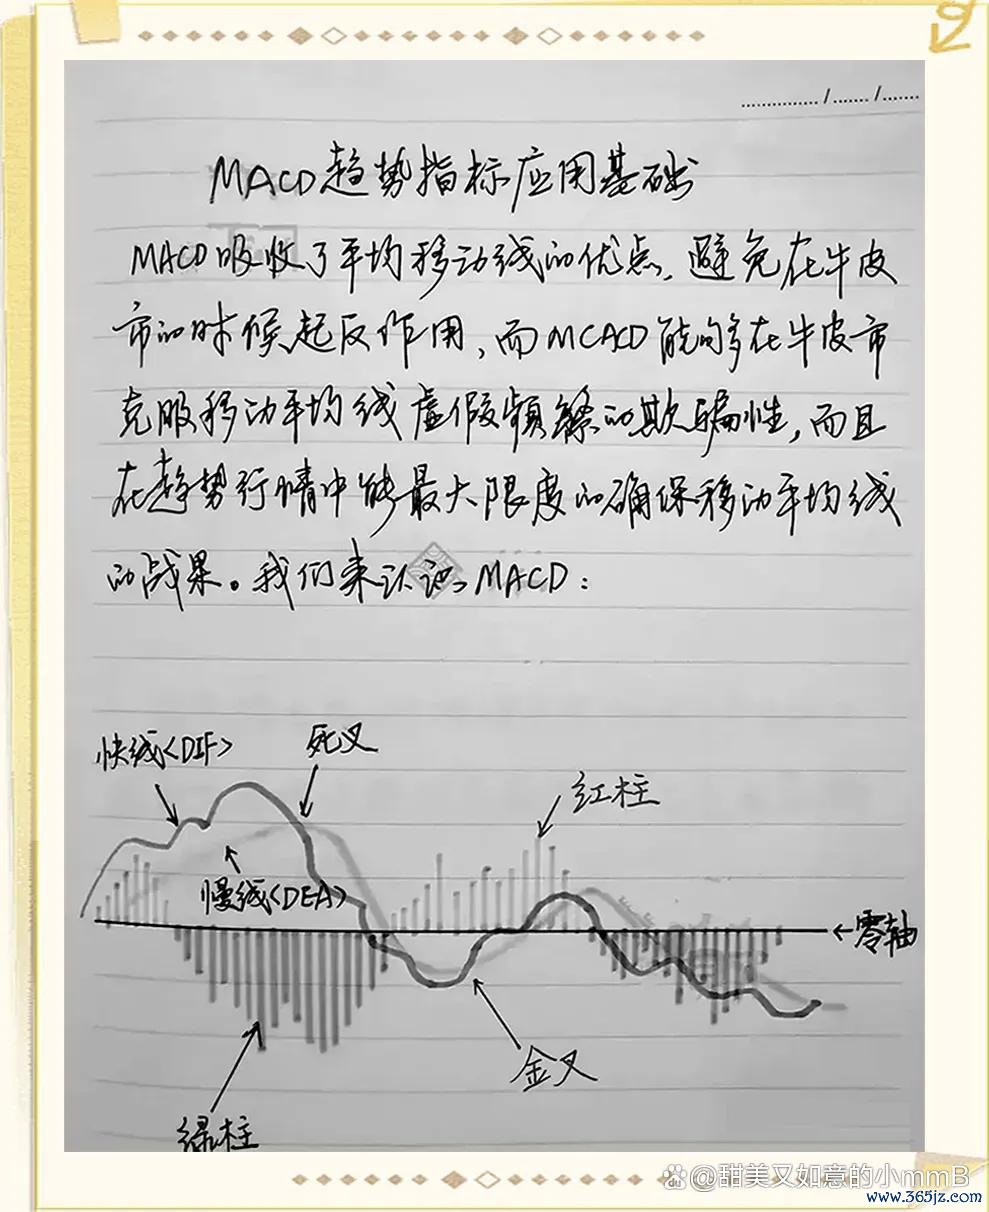 ....../....../......
MACD趋势指标应用基础
MACD吸收了平均移动线的优点,避免在牛皮
市的时候起反作用,而MCACD能够在牛皮市
克服移动平均线虚假频繁的欺骗性,而且
在趋势行情中能最大限度的确保移动平均线
的战果。我们来认识MACD:
快线<DIF>
死叉
红柱
慢线<DEA>
←零轴
金叉
绿柱
@甜美又如意的小mmB
www.365jz.com